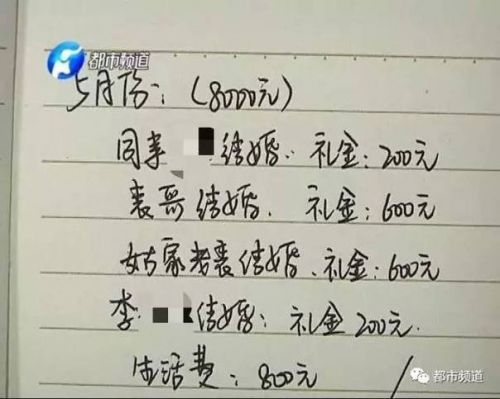 都市频道
5月份：（8000元）
同事 结婚. 礼金：200元
表哥结婚. 礼金：600元
姑家老表结婚.礼金：600元
李. 结婚：礼金200元.
生活费：800元
都市频道